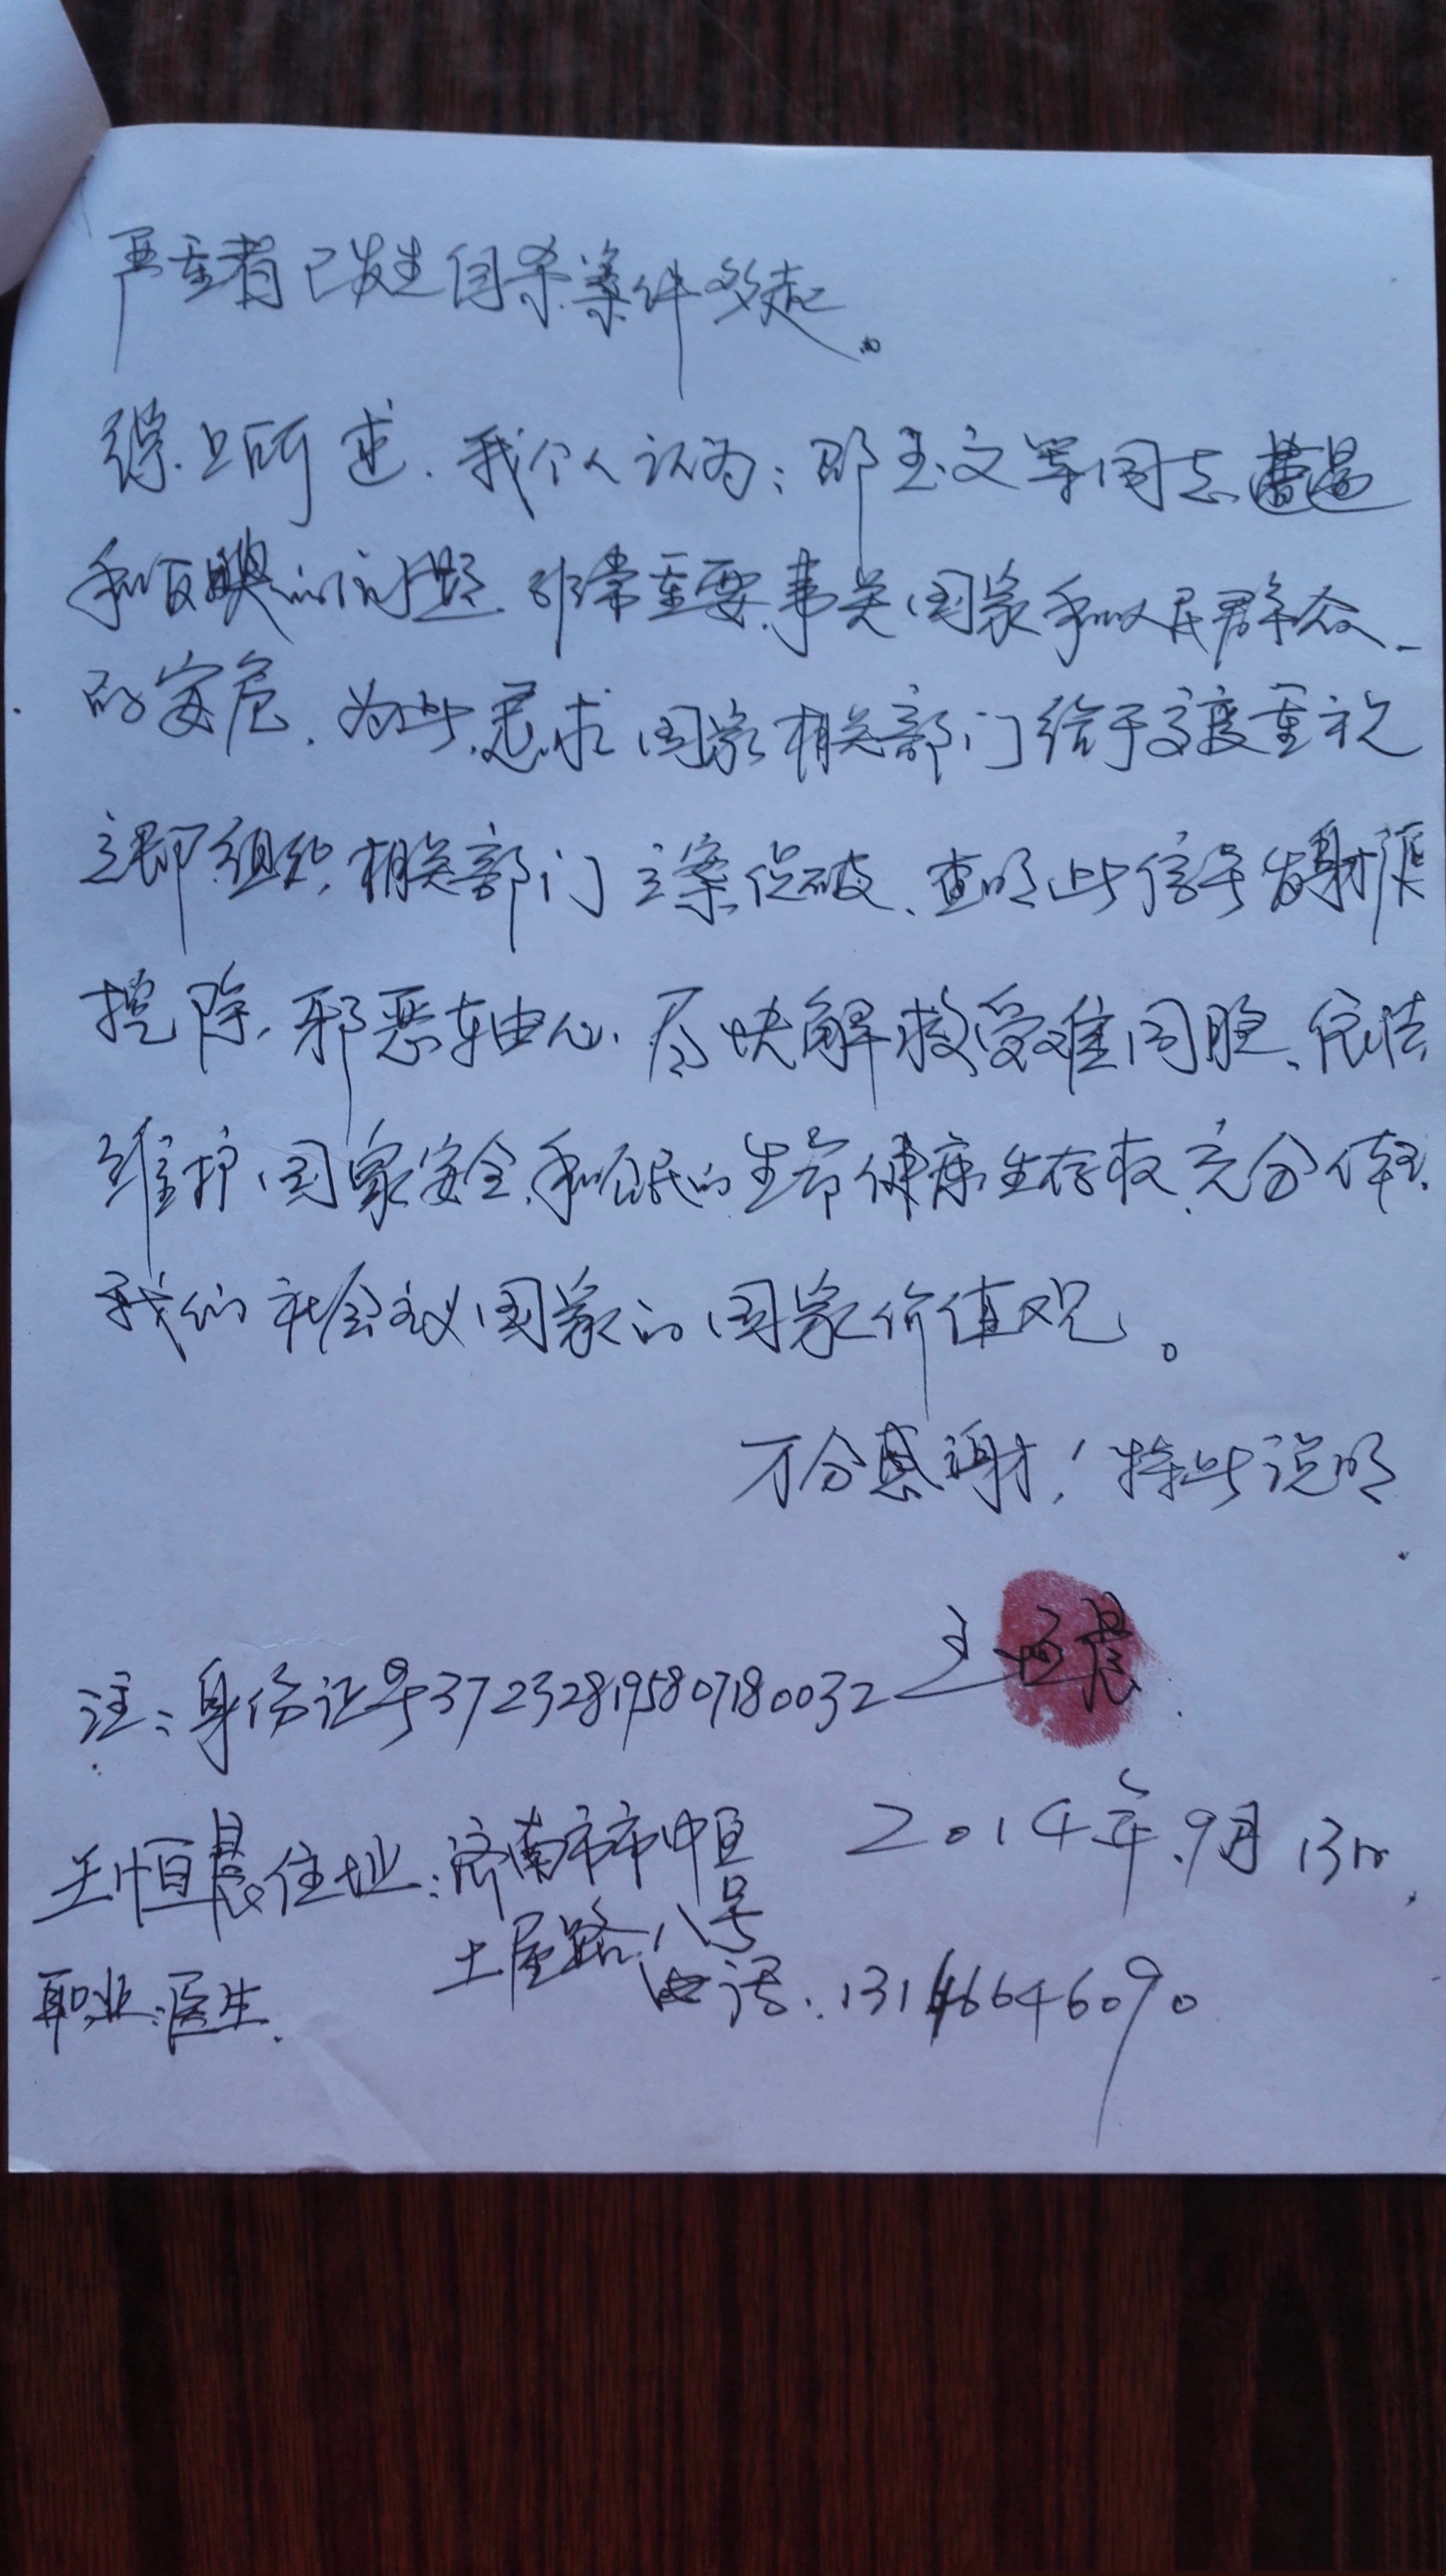 严重者已发生自杀案件多起。
综上所述、我个人认为：邵玉文等同志遭遇
和反映的问题、非常重要、事关国家和人民群众
的安危、为此、恳求国家相关部门给于高度重视
立即组织相关部门立案侦破、查明此信号发射源
挖除、邪恶轴心、尽快解救受难同胞、依法
维护国家安全、和公民的生命健康生存权、充分体现
我们社会主义国家的国家价值观。
万分感谢！特此说明
王恒晨
注：身份证号372328195807180032
2014年、9月13日
王恒晨住址：济南市市中区
土屋路八号
职业：医生
电话：13146646090